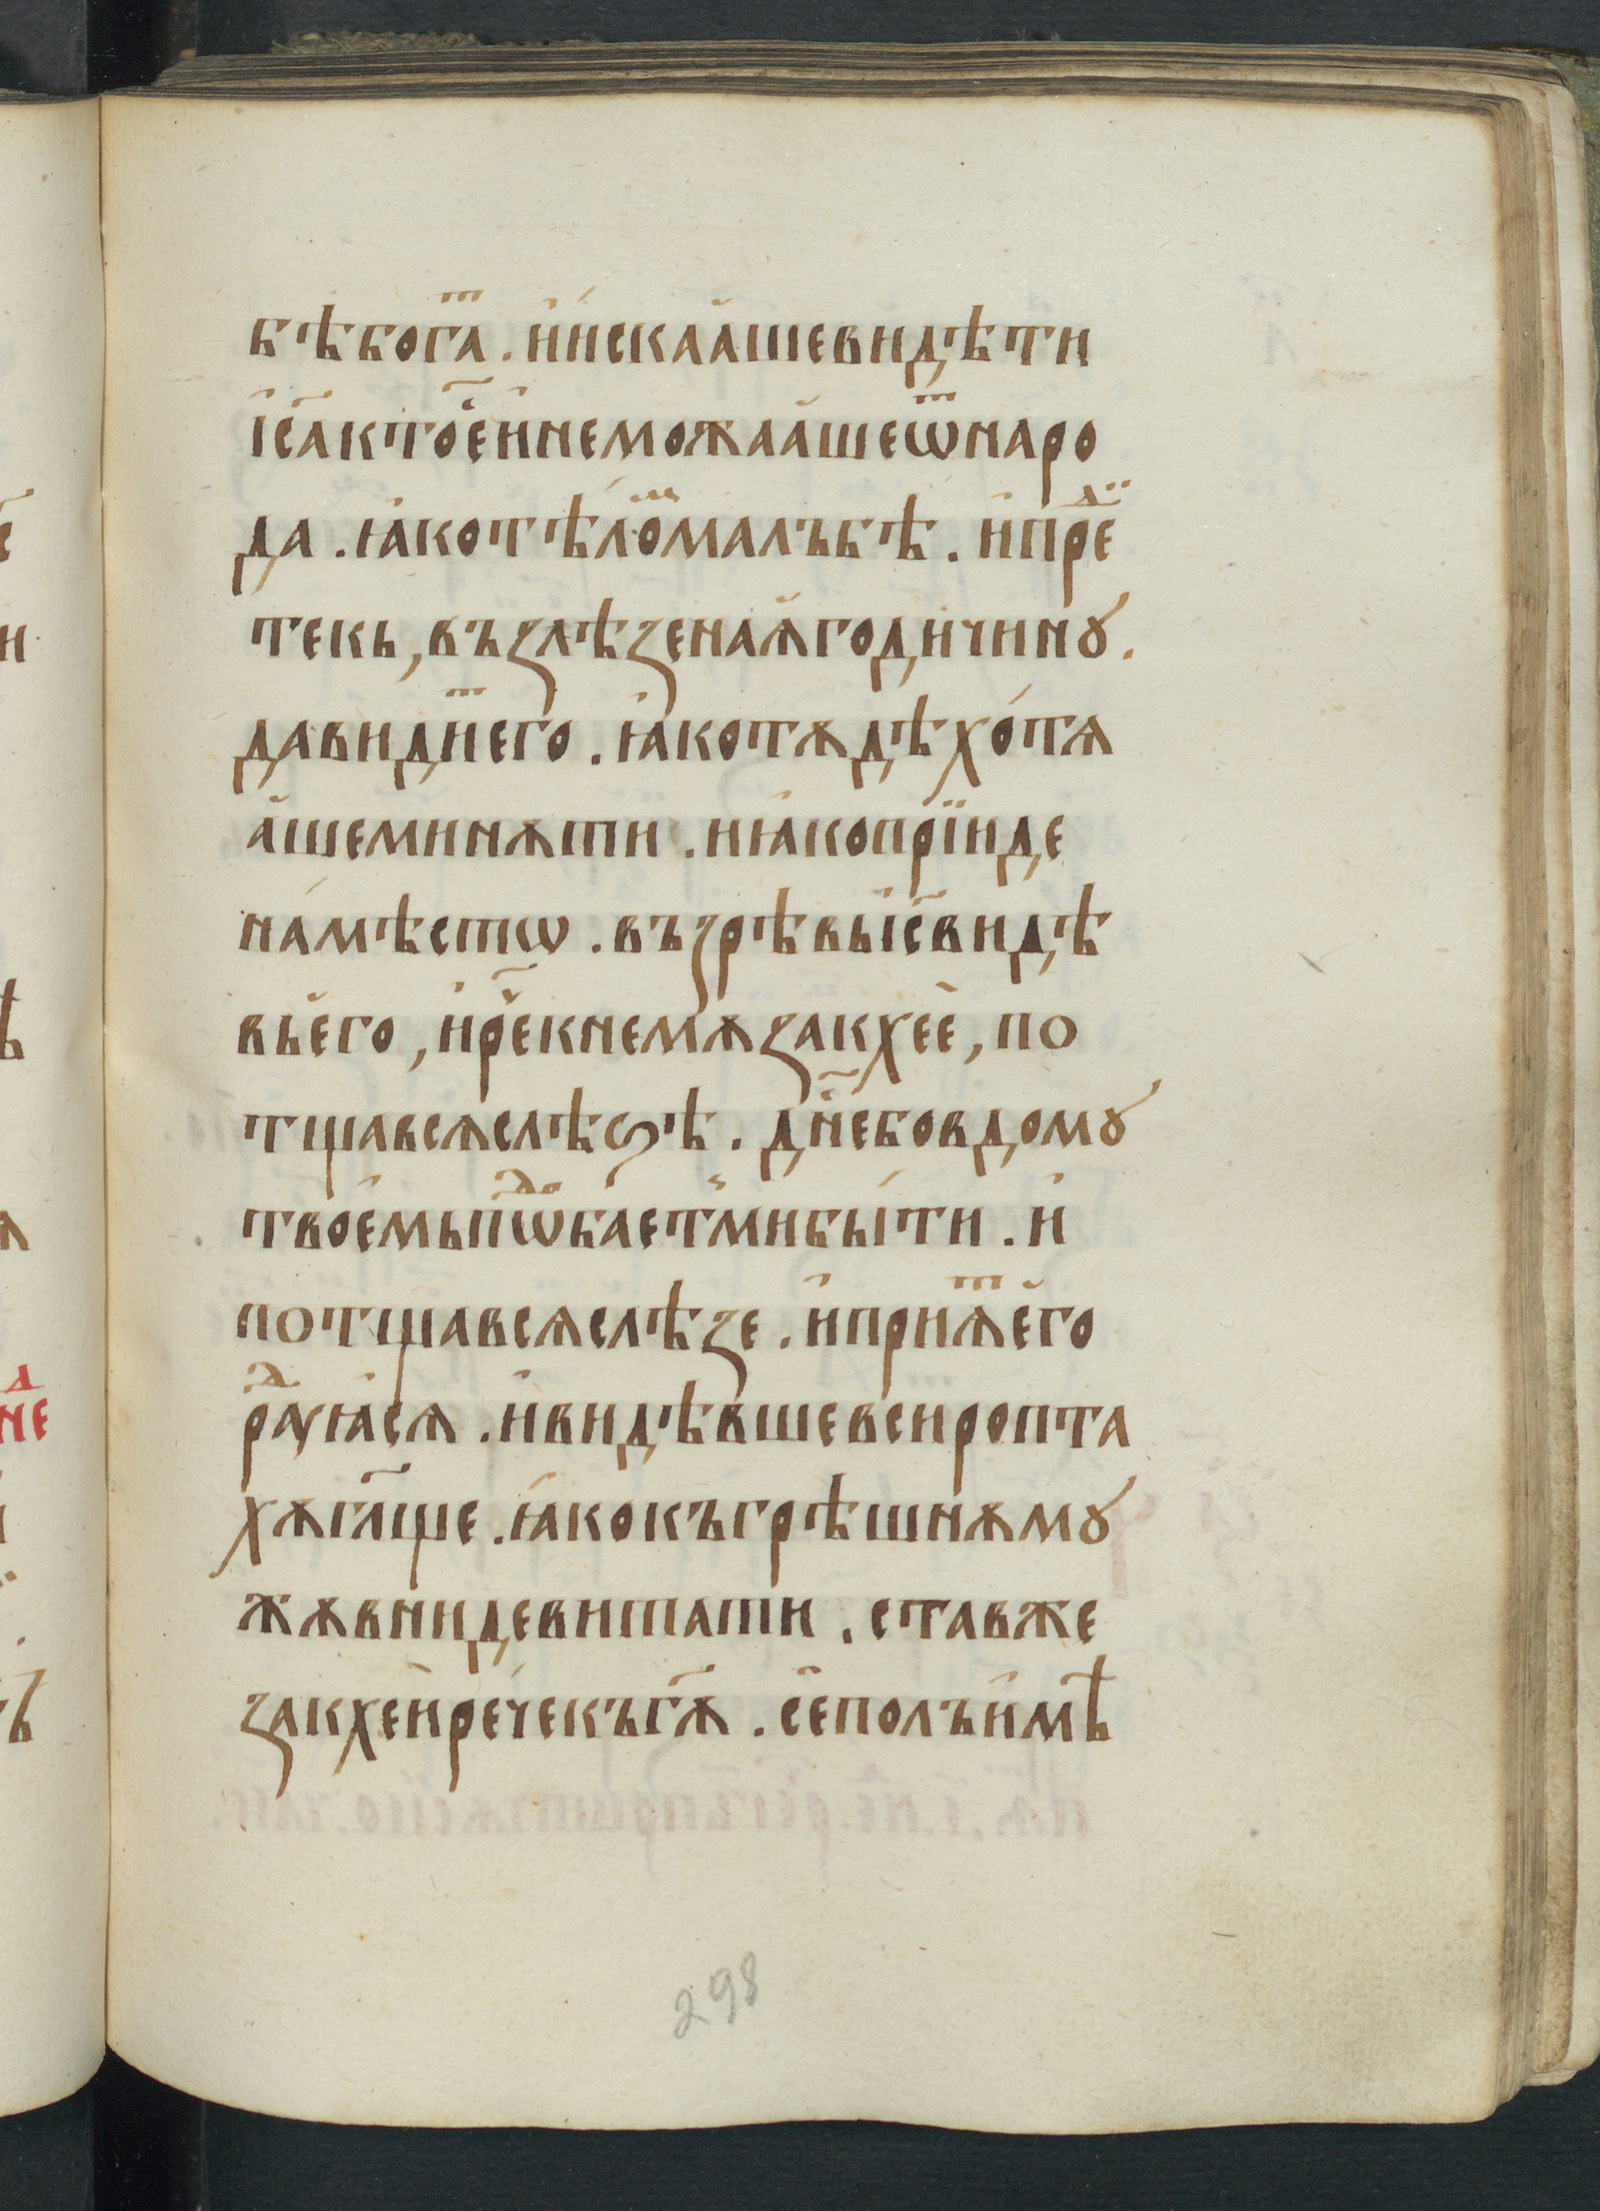 бѣ бога̑ⷮ . и҆ и҆скаа҆ше видѣти
і҆с҃а кто̑ е҆и не можаа҆ше ѿ наро
да . ꙗ҆ко тѣло́ⷨ малъ бѣ . и҆ пре́ⷣ
текь , въꙁлѣꙁе на ꙗ҆годичинꙋ .
да видиⷮ его . ꙗ҆ко тѫдѣ хо́тѧ
а҆ше минѫти . и ꙗ҆ко прїиде
на́ мѣстѡ . въꙁрѣвы і҆с҃ видѣ
вь е҆го , и҆ рⷱ҇е к немѫ ꙁакхеѐ , по
тщавсѧ слѣꙃѣ . дн҃е бо в домꙋ
твое҆мь поⷣѡбаетⷨ ми бы́ти . и҆
потщавсѧ слѣꙁе . и҆ приѧⷮ е҆го
раⷣуѧ҆сѧ . и҆ видѣвше вси ропта
хѫ гл҃ще . ꙗ҆ко къ грѣшнѫмꙋ
жѫ вни́де витати . ставже
ꙁакхеи҆ рече къ гѫ҃ . се҆ полъ и҆мѣ
298